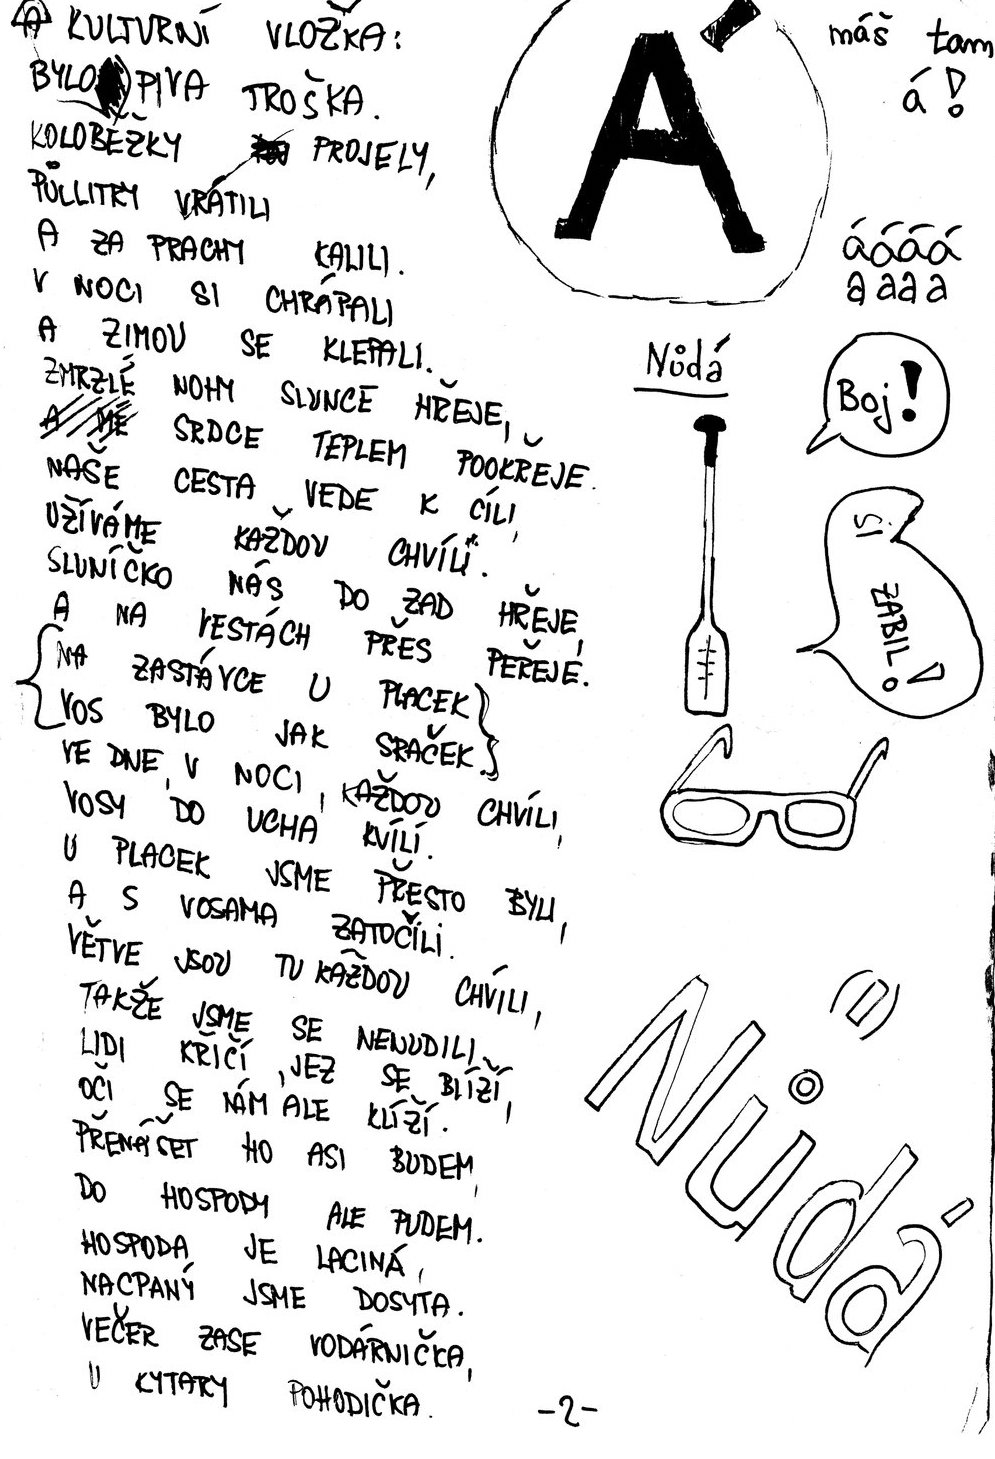 A KULTURNÍ VLOŽKA:
BYLO PIVA TROŠKA.
KOLOBĚŽKY PROJELY,
PŮLLITRY VRÁTILI
A ZA PRACHY KALILI.
V NOCI SI CHRÁPALI
A ZIMOU SE KLEPALI.
ZMRZLÉ NOHY SLUNCE HŘEJE,
A MÉ SRDCE TEPLEM POOKŘEJE.
NAŠE CESTA VEDE K CÍLI,
UŽÍVÁME KAŽDOU CHVÍLI.
SLUNÍČKO NÁS DO ZAD HŘEJE,
A NA VESTÁCH PŘES PEŘEJE.
NA ZASTÁVCE U PLACEK
VOS BYLO JAK SRAČEK.
VE DNE, V NOCI, KAŽDOU CHVÍLI,
VOSY DO UCHA KVÍLÍ.
U PLACEK JSME PŘESTO BYLI,
A S VOSAMA ZATOČILI.
VĚTVE JSOU TU KAŽDOU CHVÍLI,
TAKŽE JSME SE NENUDILI.
LIDI KŘIČÍ, JEZ SE BLÍŽÍ,
OČI SE NÁM ALE KLÍŽÍ.
PŘENÁŠET HO ASI BUDEM,
DO HOSPODY ALE PUDEM.
HOSPODA JE LACINÁ,
NACPANÝ JSME DOSYTA.
VEČER ZASE VODÁRNIČKA,
U KYTARY POHODIČKA.
-2-
Á
máš tam
á!
áááá
aaaa
Nůdá
Boj!
SI
ZABIL!
(II)
Nůdá